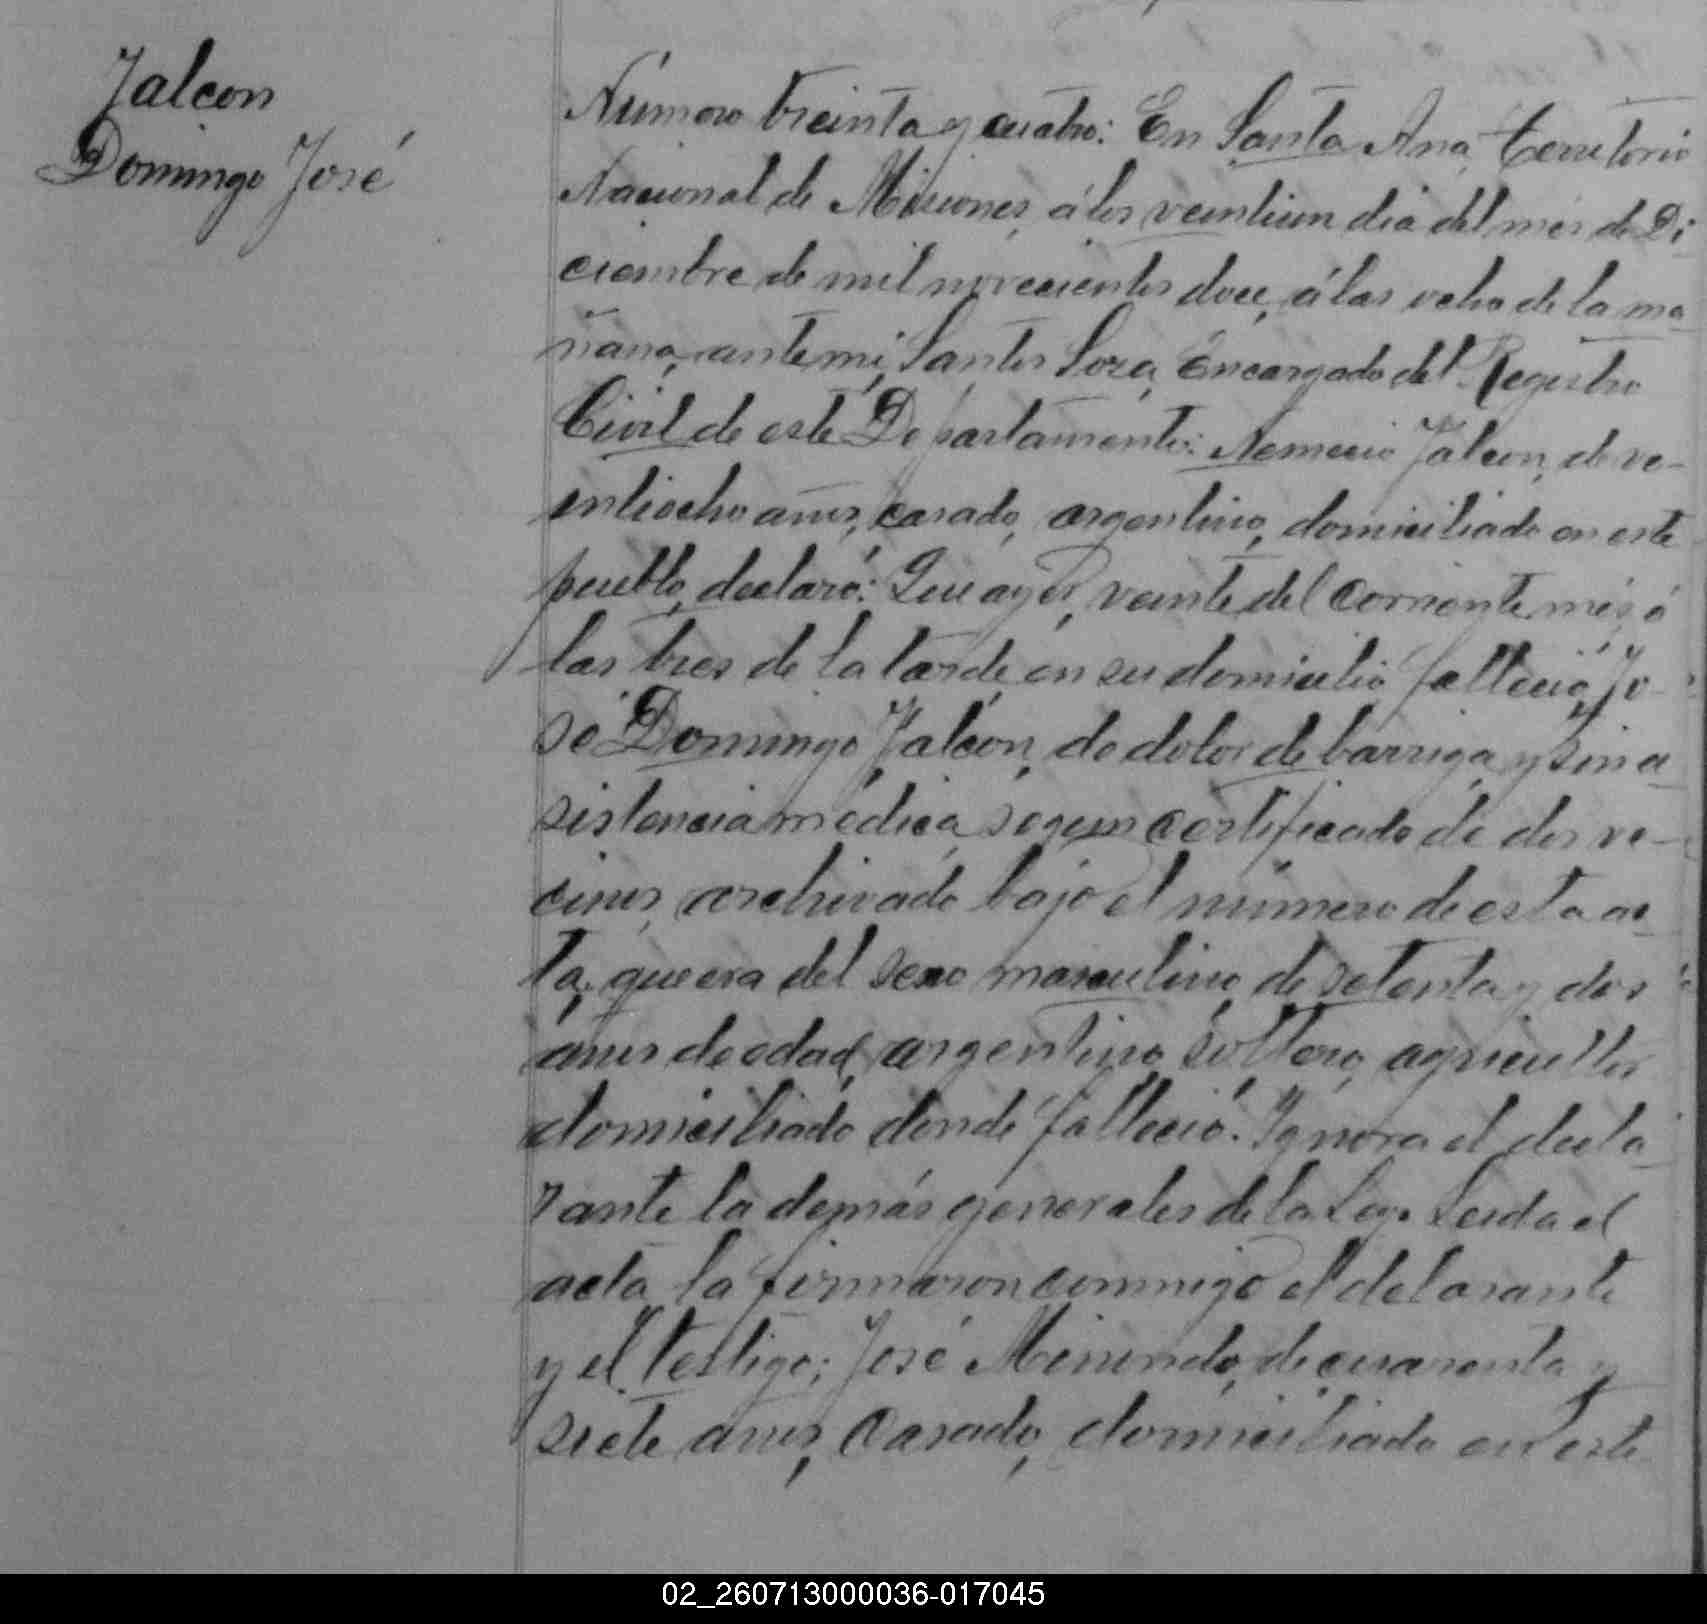 Falcon
Domingo José
Número treinta y cuatro: En Santa Ana, Territorio
Nacional de Misiones, á los veintiun dia del mes de Di
ciembre de mil novecientos doce, á las ocho de la ma
ñana, ante mi, Santos Soza, Encargado del Registro
Civil de este Departamento: Nemecio Falcon, de ve-
intiocho años, casado, argentino, domiciliado en este
pueblo, declaró: Que ayer, veinte del corriente mes, á
las tres de la tarde en su domicilio falleció, Jo
sé Domingo Falcon, de dolor de barriga y sin a
sistencia médica, segun certificado de dos ve-
cinos, archivado bajo el número de esta ac
ta, que era del sexo masculino, de setenta y dos
anos de edad, argentino, soltero, agricultor
domiciliado donde falleció. Ignora el decla
rante la demás generales de la Ley. Leida el
acta la firmaron conmigo el delarante
y el testigo; José de cuarenta y
siete anos, Casado, domiciliado en este
02_260713000036-017045